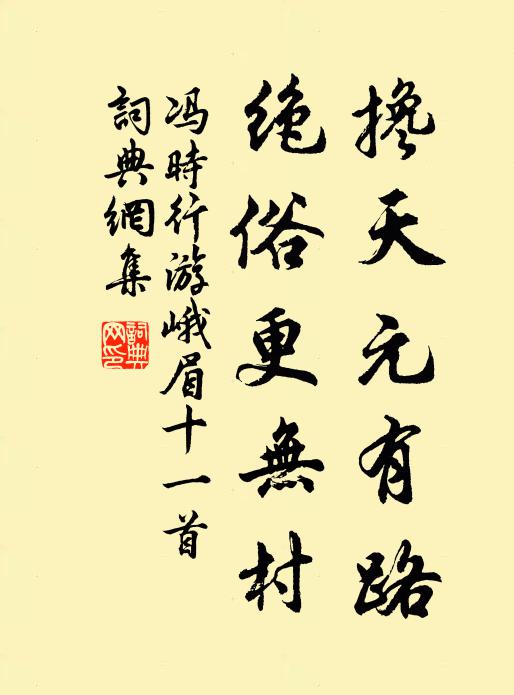 搀天元有路
绝俗更無村
冯時行游峨眉十一首
詞典網集
詞典網印